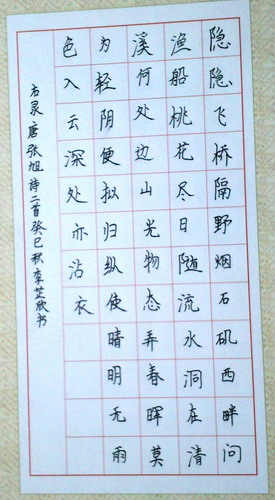 隐隐飞桥隔野烟石矶西畔问
渔船桃花尽日随流水洞在清
溪何处边山光物态弄春晖莫
为轻阴便拟归纵使晴明无雨
色入云深处亦沾衣
右录唐张旭诗二首癸巳秋欣书